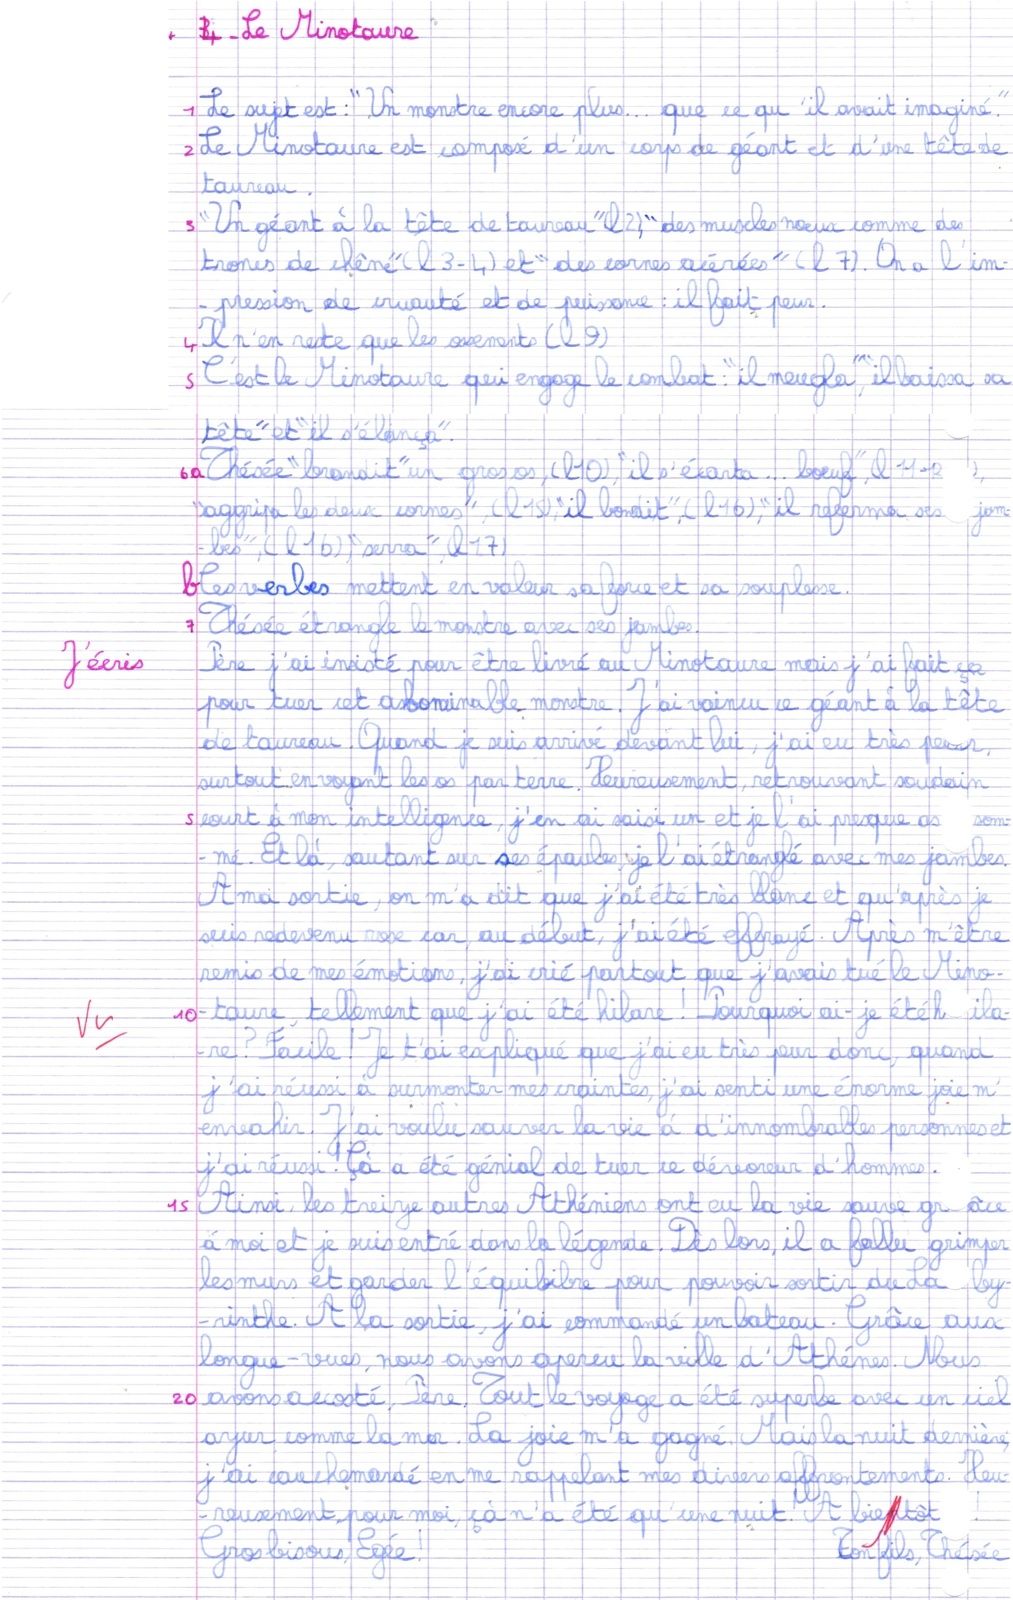 B4 - Le Minotaure
1 Le sujet est : "Un monstre encore plus... que ce qu'il avait imaginé."
2 Le Minotaure est composé d'un corps de géant et d'une tête de
taureau.
3 "Un géant à la tête de taureau" (l 2), "des muscles noeux comme des
troncs de chêne" (l 3-4) et "des cornes acérées" (l 7). On a l'im-
-pression de cruauté et de puissance : il fait peur.
4 Il n'en reste que les ossements (l 9)
5 C'est le Minotaure qui engage le combat : "il meugla", "il baissa sa
tête" et "il s'élança".
6a Thésée "brandit" un gros os, (l10), "il s'écarta... boeuf", (l 11-12),
"aggripa les deux cornes", (l 15), "il bondit", (l 16), "il referma ses jam-
-bes", (l 16), "serra", (l 17)
b Ces verbes mettent en valeur sa force et sa souplesse.
7 Thésée étrangle le monstre avec ses jambes.
J'écris Père j'ai insisté pour être livré au Minotaure mais j'ai fait ça
pour tuer cet abominable monstre. J'ai vaincu ce géant à la tête
de taureau. Quand je suis arrivé devant lui, j'ai eu très peur,
surtout en voyant les os par terre. Heureusement, retrouvant soudain
5 court à mon intelligence, j'en ai saisi un et je l'ai presque as som-
-mé. Et là, sautant sur ses épaules, je l'ai étranglé avec mes jambes.
A ma sortie, on m'a dit que j'ai été très blanc et qu'après je
suis redevenu rose car, au début, j'ai été effrayé. Après m'être
remis de mes émotions, j'ai crié partout que j'avais tué le Mino-
10 -taure, tellement que j'ai été hilare ! Pourquoi ai-je été h ila-
-re ? Facile ! Je t'ai expliqué que j'ai eu très peur donc, quand
j'ai réussi à surmonter mes craintes, j'ai senti une énorme joie m'
envahir. J'ai voulu sauver la vie à d'innombrables personnes et
j'ai réussi ! Çà a été génial de tuer ce dévoreur d'hommes.
15 Ainsi, les treize autres Athéniens ont eu la vie sauve gr âce
à moi et je suis entré dans la légende. Dès lors, il a fallu grimper
les murs et garder l'équilibre pour pouvoir sortir du La by-
-rinthe. A la sortie, j'ai commandé un bateau. Grâce aux
longue-vues, nous avons aperçu la ville d'Athénes. Nous
20 avons acosté, Père. Tout le voyage a été superbe avec un ciel
azur comme la mer. La joie m'a gagné. Mais la nuit dernière,
j'ai cauchemardé en me rappelant mes divers affrontements. Heu-
-reusement, pour moi, çà n'a été qu'une nuit. A bientôt !
Gros bisous, Egée ! Ton fils, Thésée